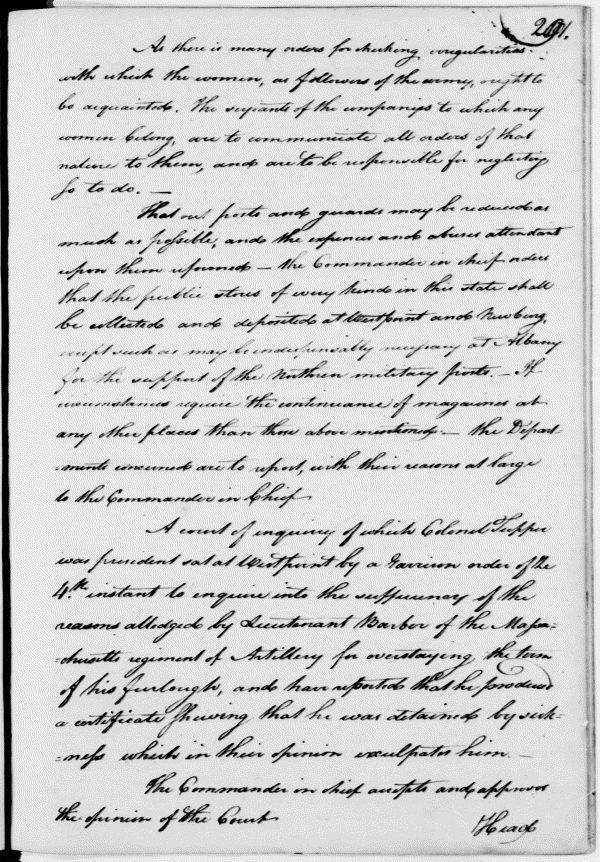 291.
As there is many orders for checking irregularities
with which the women, as followers of the army, ought to
be acquainted. The serjeants of the companies to which any
women belong, are to communicate all orders of that
nature to them, and are to be responsible for neglecting
so to do. —
That out posts and guards may be reduced as
much as possible, and the expences and abuses attendant
upon them reformed — the Commander in chief orders
that the public stores of every kind in this state shall
be collected and deposited at Westpoint and Newburg,
except such as may be indespensably necessary at Albany
for the support of the Northren military posts. — If
circumstances require the continuance of magazines at
any other places than those above mentioned — the Depart-
-ments concerned are to report, with their reasons at large
to the Commander in Chief
A court of enquiry of which Colonel Tupper
was president sat at Westpoint by a Garrison order of the
4th. instant to enquire into the sufficiency of the
reasons alledged by Lieutenant Barber of the Massa-
-chusetts regiment of Artillery for overstaying the term
of his furlough, and have reported that he produced
a certificate shewing that he was detained by sick-
-ness which in their opinion exculpates him. —
The Commander in chief accepts and approves
the opinion of the Court
Head